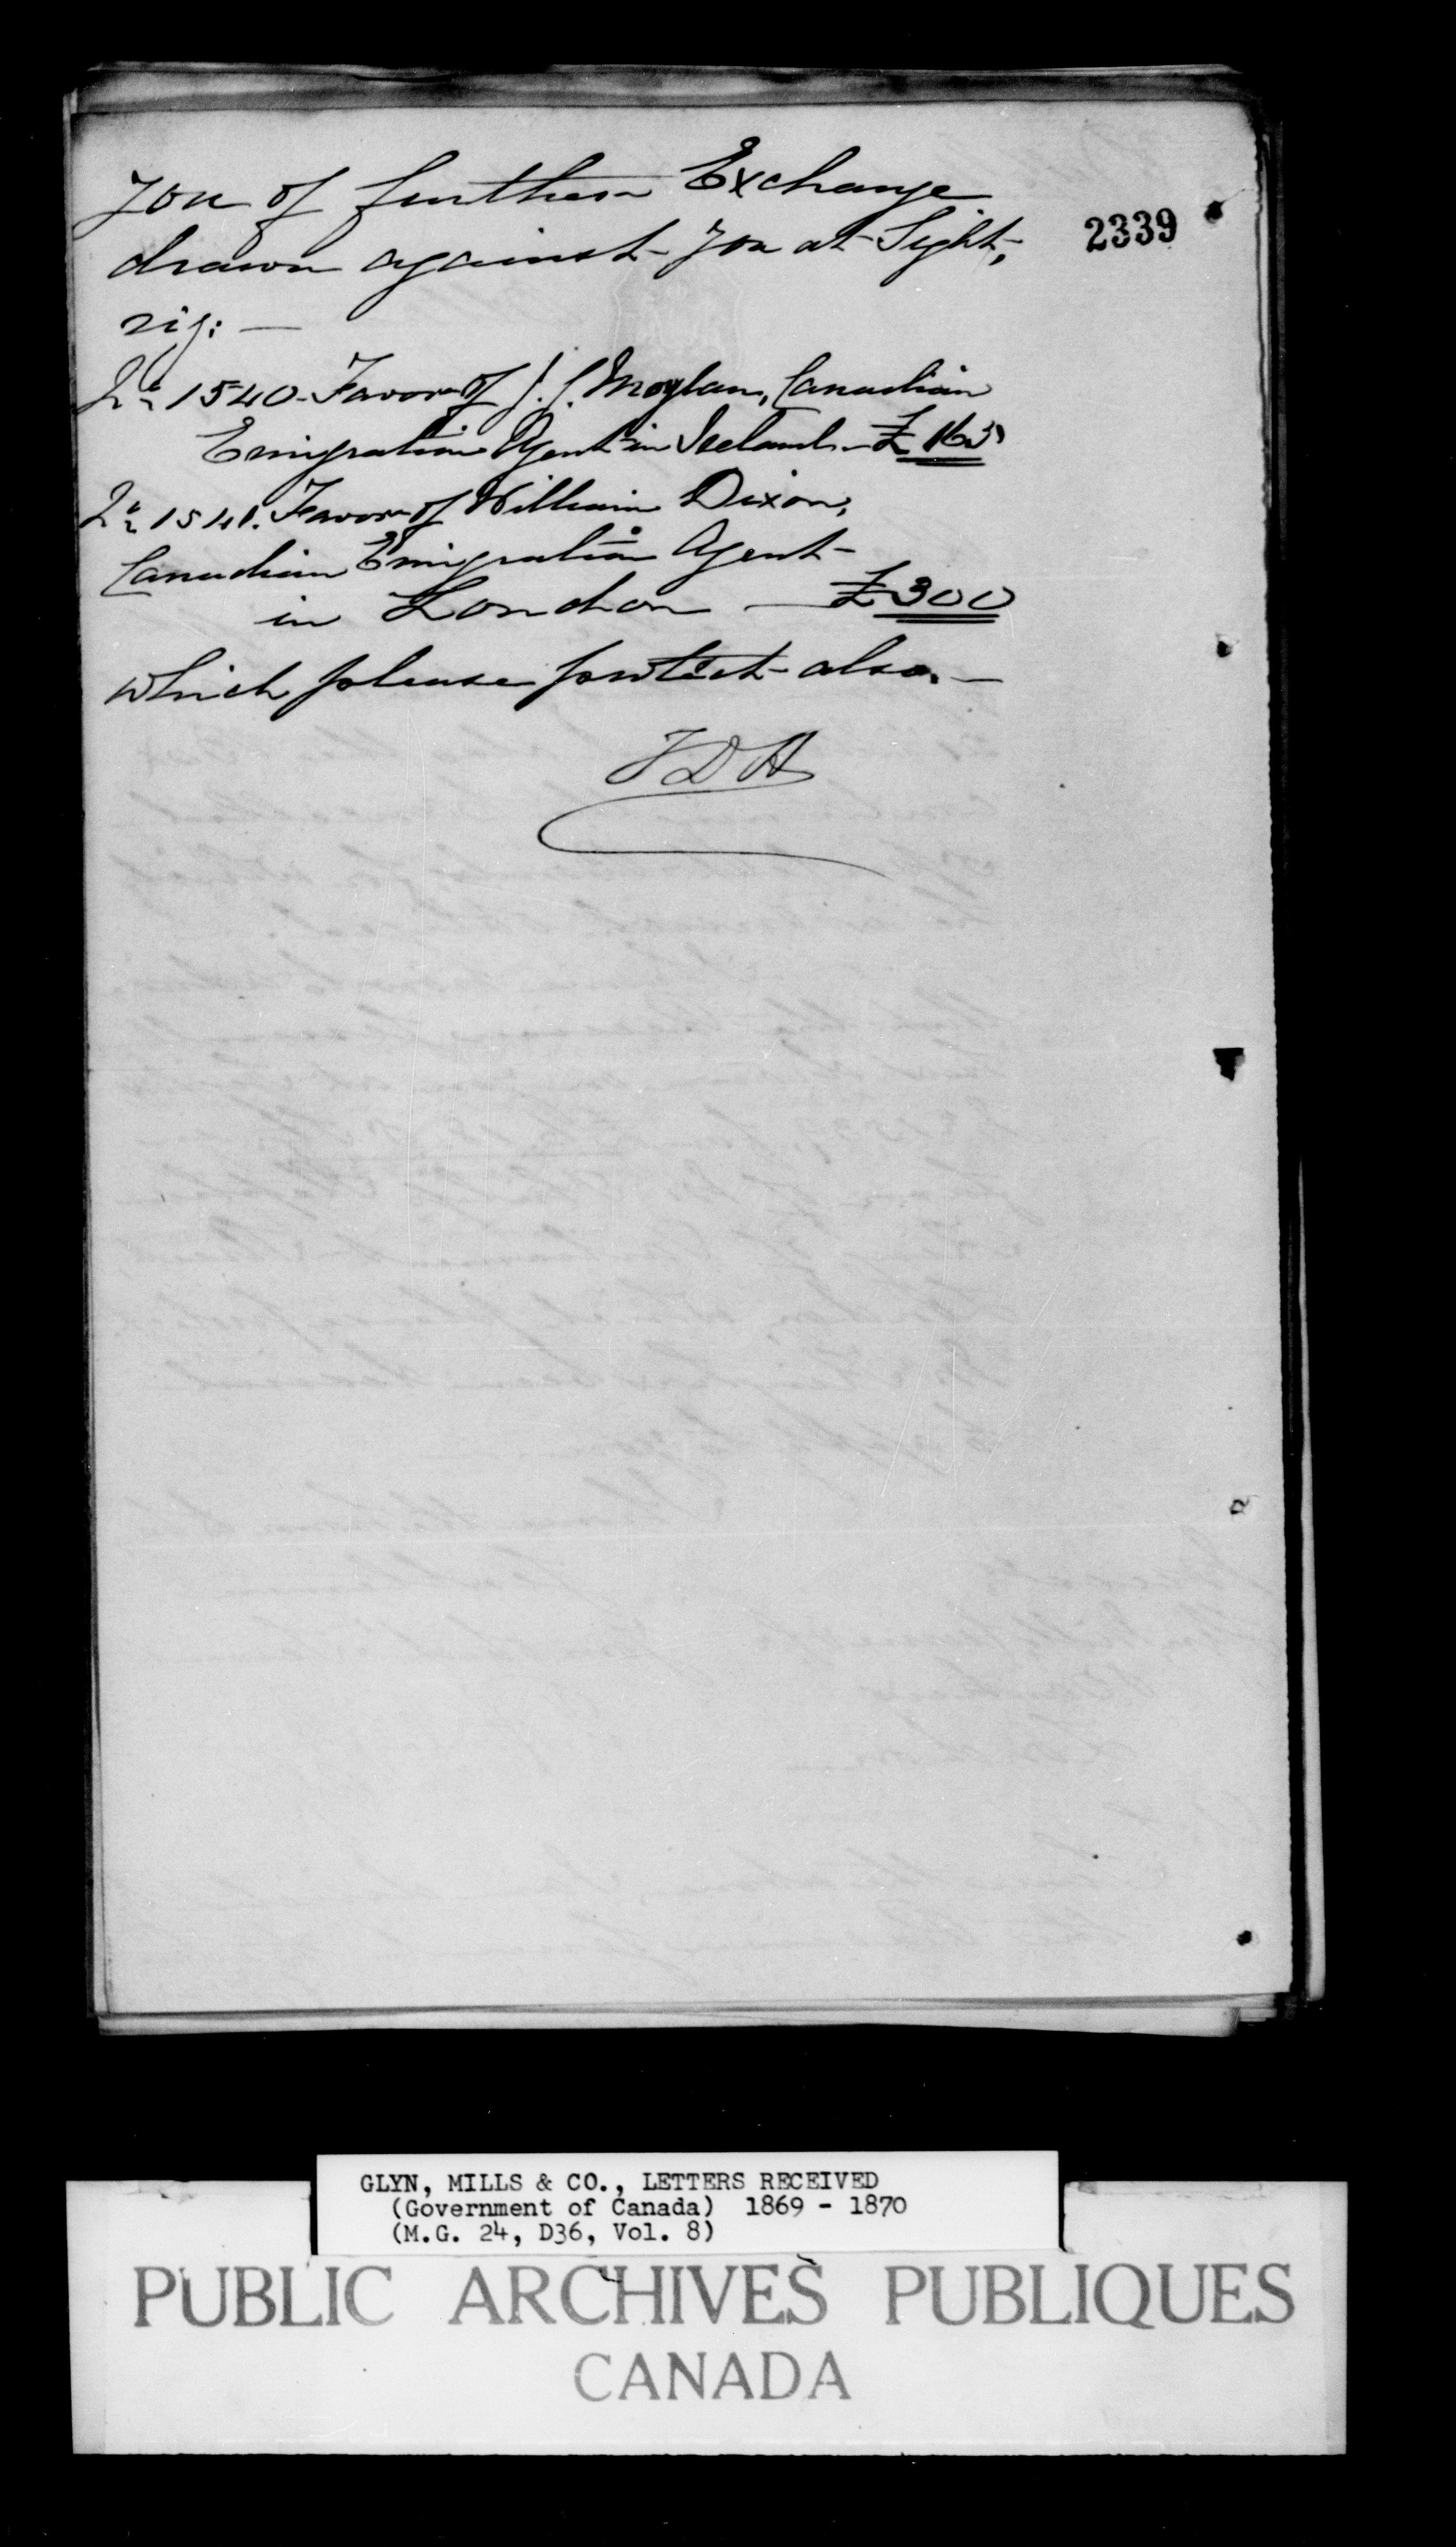 you of further Exchange
drawn against you at Sight,
viz: —
2339
No 1540. Favor of J. G. Moylan, Canadian
Emigration Agent in Ireland — £163
No 1541. Favor of William Dixon,
Canadian Emigration Agent
in London — £300
which please protect also. —
JDH
GLYN, MILLS & CO., LETTERS RECEIVED
(Government of Canada) 1869 - 1870
(M.G. 24, D36, Vol. 8)
PUBLIC ARCHIVES PUBLIQUES
CANADA